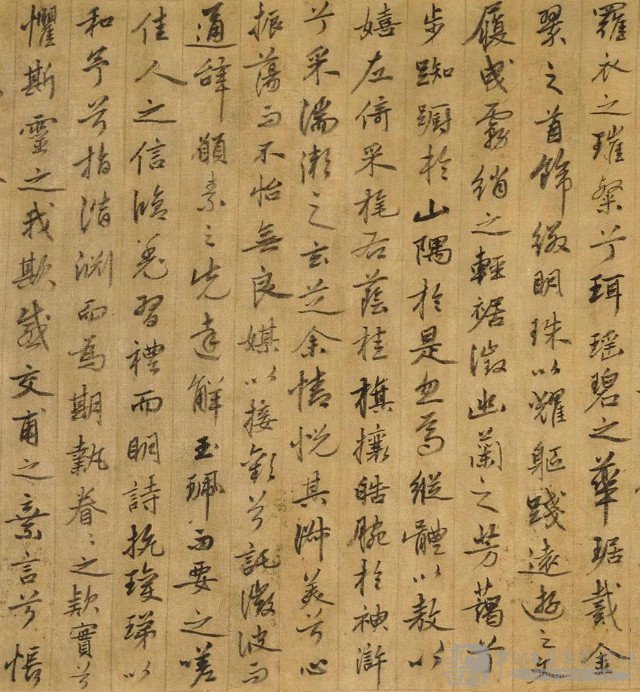 羅衣之璀粲兮珥瑶碧之華琚戴金
翠之首飾綴明珠以耀軀踐遠遊之文
履曳霧綃之輕裾微幽蘭之芳藹兮
步踟蹰於山隅於是忽焉縱體以敖以
嬉左倚采旄右蔭桂旗攘皓腕於神滸
兮采湍瀨之玄芝余情悅其淑美兮心
振蕩而不怡無良媒以接歡兮託微波而
通辭願素之先達解玉珮而要之嗟
佳人之信脩羌習禮而明詩抗瓊珶以
和予兮指潛淵而為期執眷〻之款實兮
懼斯靈之我欺感交甫之棄言兮悵